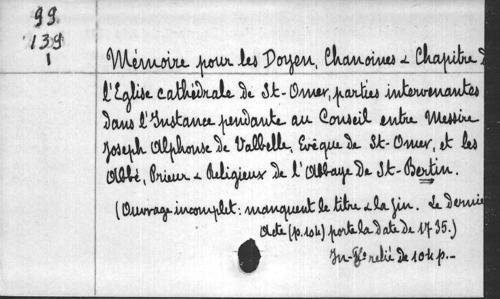 99
139
1
Mémoire pour les Doyen, Chanoines & Chapitre d
l'Eglise cathédrale de St-Omer, parties intervenantes
dans l'Instance pendante au Conseil entre Messire
Joseph Alphonse de Valbelle, Evêque de St-Omer, et les
Abbé, Prieur & Religieux de l'Abbaye de St-Bertin.
(Ouvrage incomplet: manquent le titre & la fin. Le dernie
Acte (p. 104) porte la date de 1735.)
In-fo relié de 104 p.-